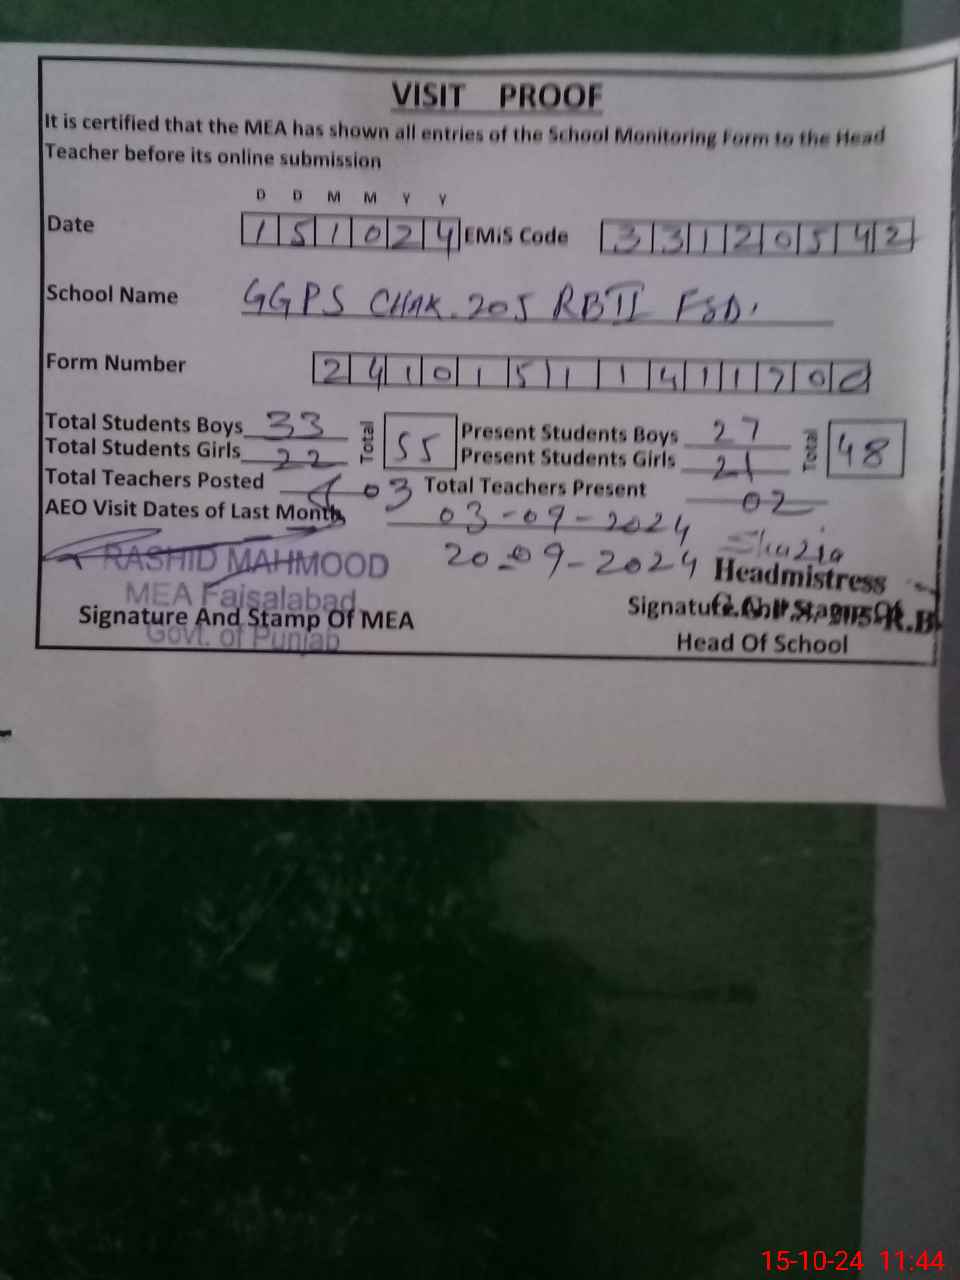 VISIT PROOF
It is certified that the MEA has shown all entries of the School Monitoring Form to the Head
Teacher before its online submission
D D M M Y Y
Date 151024 EMIS Code 33120542
School Name GGPS CHAK.205 RBII FSD.
Form Number 24101511411700
Total Students Boys 33 Total 55 Present Students Boys 27 Total 48
Total Students Girls 22 Present Students Girls 21
Total Teachers Posted 03 Total Teachers Present 02
AEO Visit Dates of Last Month 03-09-2024
20-09-2024
Shazia
RASHID MAHMOOD
Headmistress
MEA Faisalabad
Signature And Stamp Of MEA
Govt. of Punjab
Head Of School
15-10-24 11:44